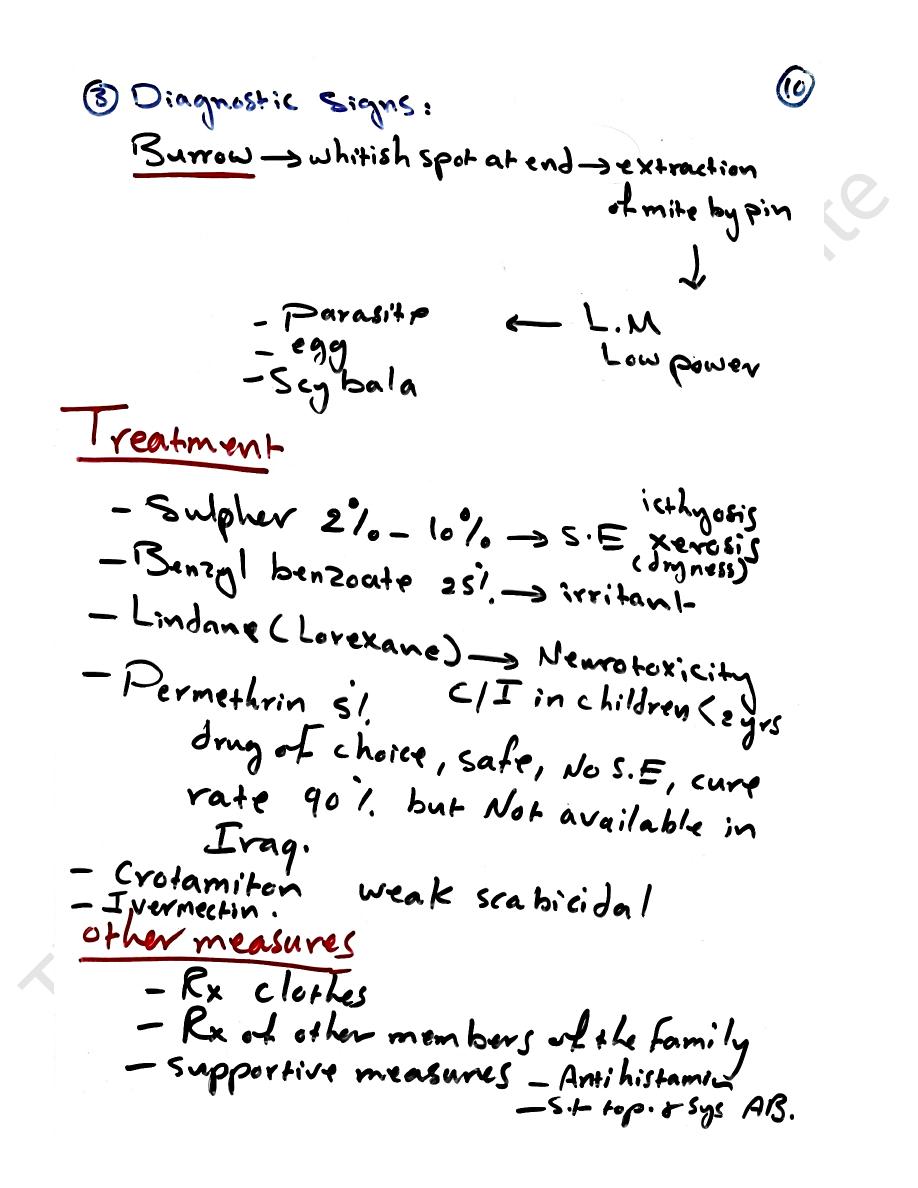 10
③ Diagnostic Signs:
Burrow → whitish spot at end → extraction
of mite by pin
↓
- Parasite ← L.M
- egg Low power
- Scybala
Treatment
- Sulpher 2% - 10% → S.E icthyosis
xerosis
(dryness)
- Benzyl benzoate 25% → irritant
- Lindane (Lorexane) → Neurotoxicity
C/I in children < 2 yrs
- Permethrin 5%
drug of choice, safe, No S.E, cure
rate 90% but Not available in
Iraq.
- Crotamiton weak scabicidal
- Ivermectin.
other measures
- Rx clothes
- Rx of other members of the family
- supportive measures - Antihistamin
- s.t top. & sys AB.